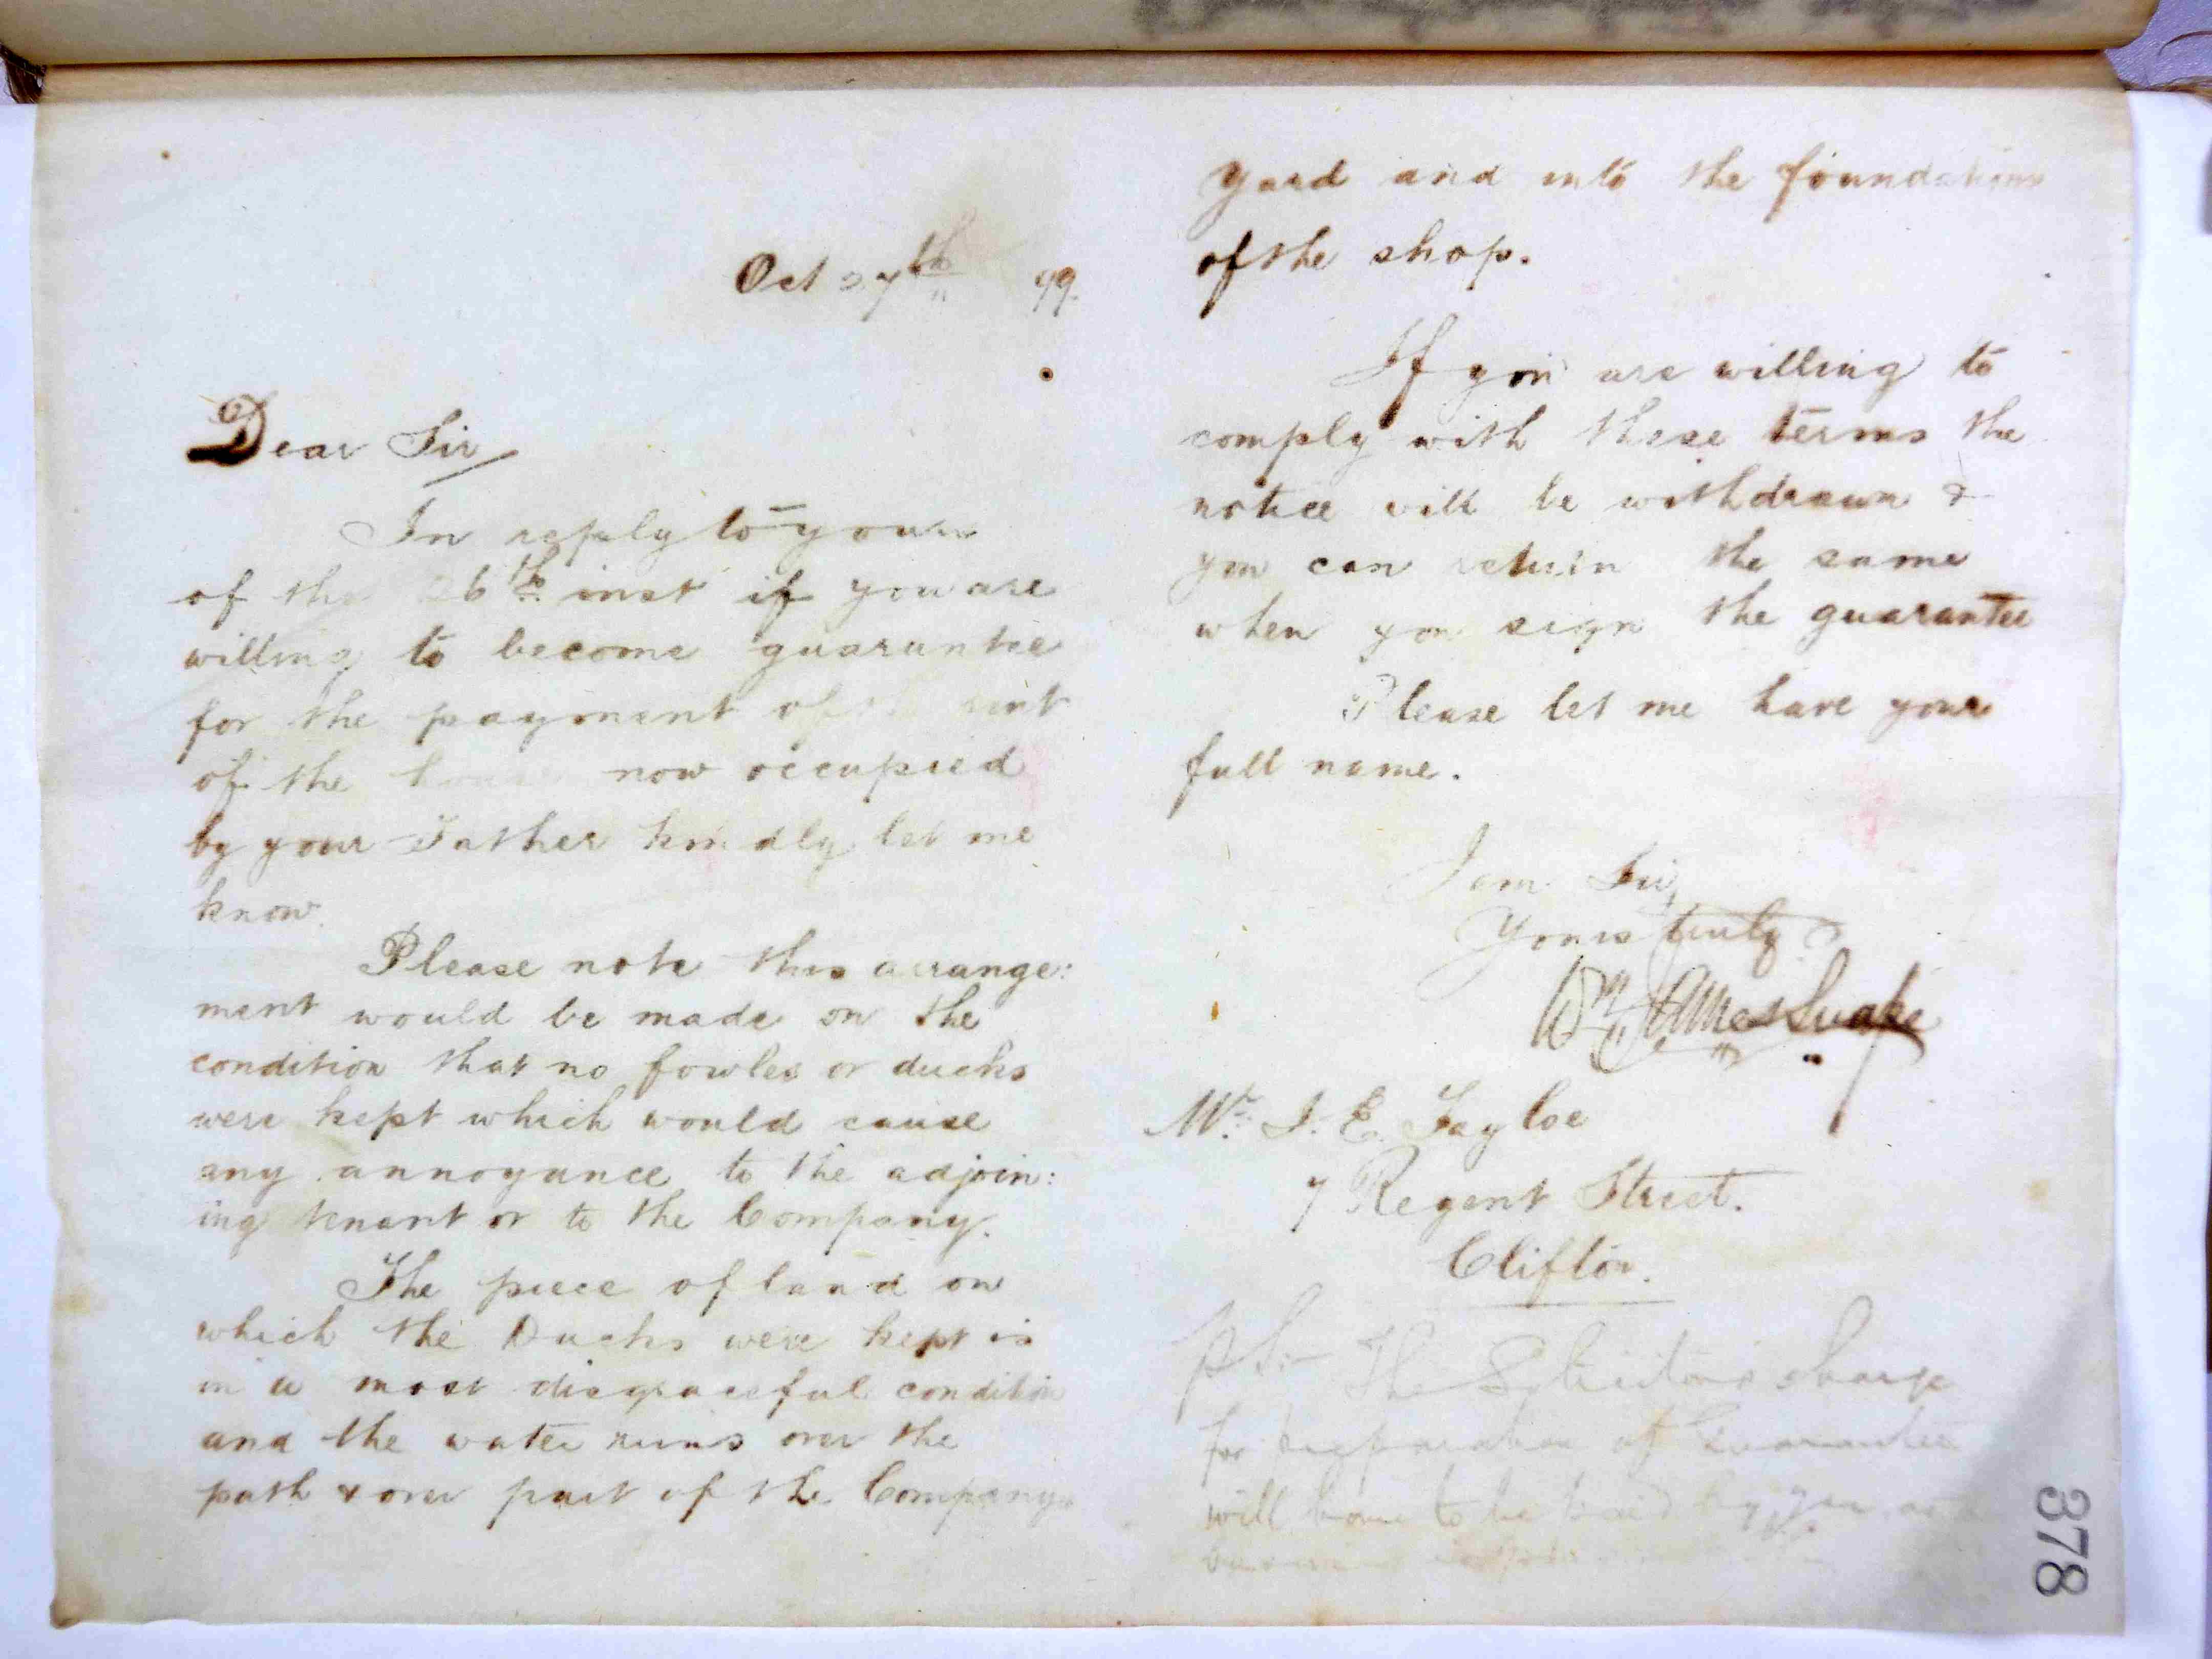 Oct 27th 99.
Dear Sir
In reply to yours
of the 26th inst if you are
willing to become guarantee
for the payment of the rent
of the house now occupied
by your Father kindly let me
know.
Please note this arrange:
ment would be made on the
condition that no fowles or ducks
were kept which would cause
any annoyance to the adjoin:
ing tenant or to the Company.
The piece of land on
which the Ducks were kept is
in a most disgraceful condition
and the water runs over the
path & over part of the Companys
yard and into the foundations
of the shop.
If you are willing to
comply with these terms the
notice will be withdrawn &
you can return the same
when you sign the guarantee
Please let me have your
full name.
I am Sir,
Yours truly
Mr. J. E. Tayloe
7 Regent Street.
Clifton.
The Solicitors charge
for preparation of Guarantee
will have to be paid by you
378